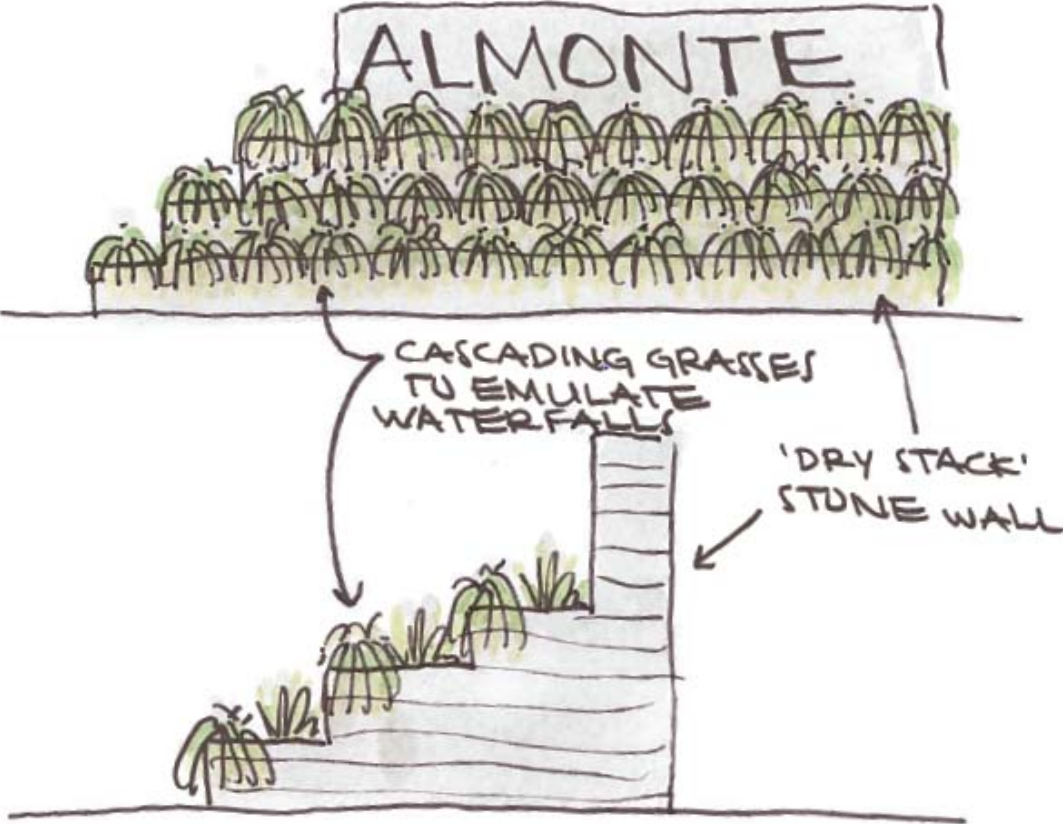 ALMONTE
CASCADING GRASSES
TO EMULATE
WATERFALLS
'DRY STACK'
STONE WALL